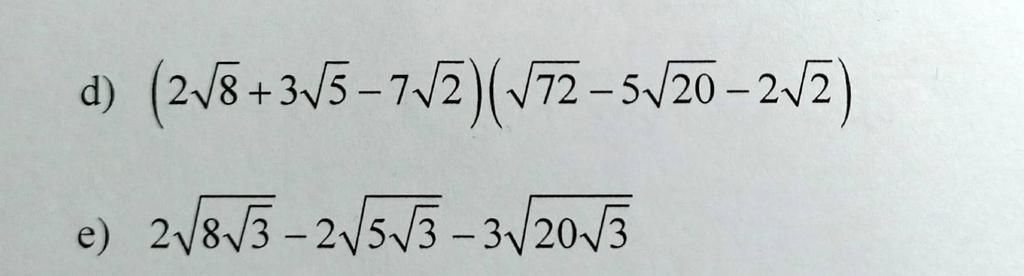 d) (2√8 + 3√5 – 7√2)(√72 – 5√20 – 2√2)
e) 2√(8√3) – 2√(5√3) – 3√(20√3)